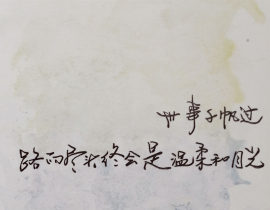 世事千帆过
路的尽头终会是温柔和月光